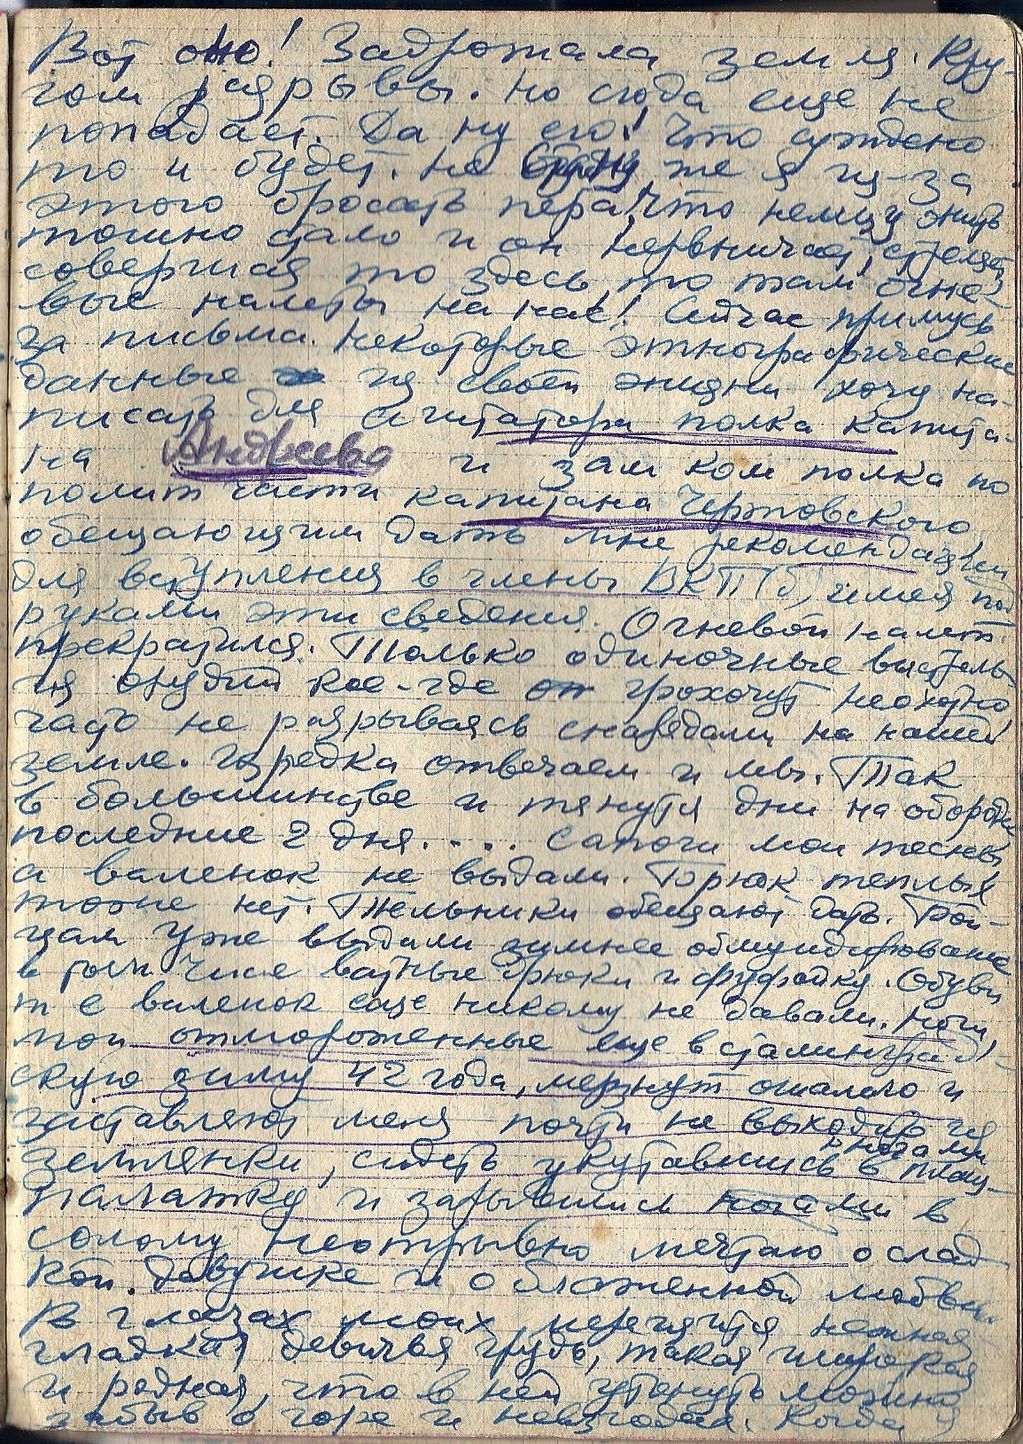 Вот оно! Задрожала земля. Кру-
гом разрывы. Но сюда еще не
попадает. Да ну его! Что суждено
то и будет. Не же я из-за
этого бросать пера! Что немцу жить
тошно стало и он нервничает, стреляет
совершая то здесь, то там огне-
вые налеты на нас! Сейчас примусь
за письма. Некоторые этнографические
данные из своей жизни хочу на-
писать для агитатора полка капита-
на Андреева и зам ком полка по
политчасти капитана Чертовского
обещающим дать мне рекомендации
для вступления в члены ВКП(б), имея под
руками эти сведения. Огневой налет
прекратился. Только одиночные выстрелы
из орудий кое-где грохочут неохотно
часто не разрываясь снарядами на нашей
земле. Изредка отвечаем и мы. Так
в большинстве и тянутся дни на обороне
последние 2 дня.... Сапоги мои тесны
а валенок не выдали. Брюк теплых
тоже нет. Тельники обещают дать. Бой-
цам уже выдали зимнее обмундирование
в том числе ватные брюки и фуфайку. Обуви
т е валенок еще никому не давали. Ноги
мои отмороженные еще в сталинград-
скую зиму 42 года, мерзнут ошалело и
заставляют меня почти не выходить из
землянки, сидеть укутавшись ногами в плащ-
палатку и зарывшись ногами в
солому неотрывно мечтаю о слад-
кой девушке и о блаженной любви.
В глазах моих мерещится нежная
гладкая девичья грудь, такая широкая
и родная, что в ней утонуть можно
забыв о горе и невзгодах. Когда